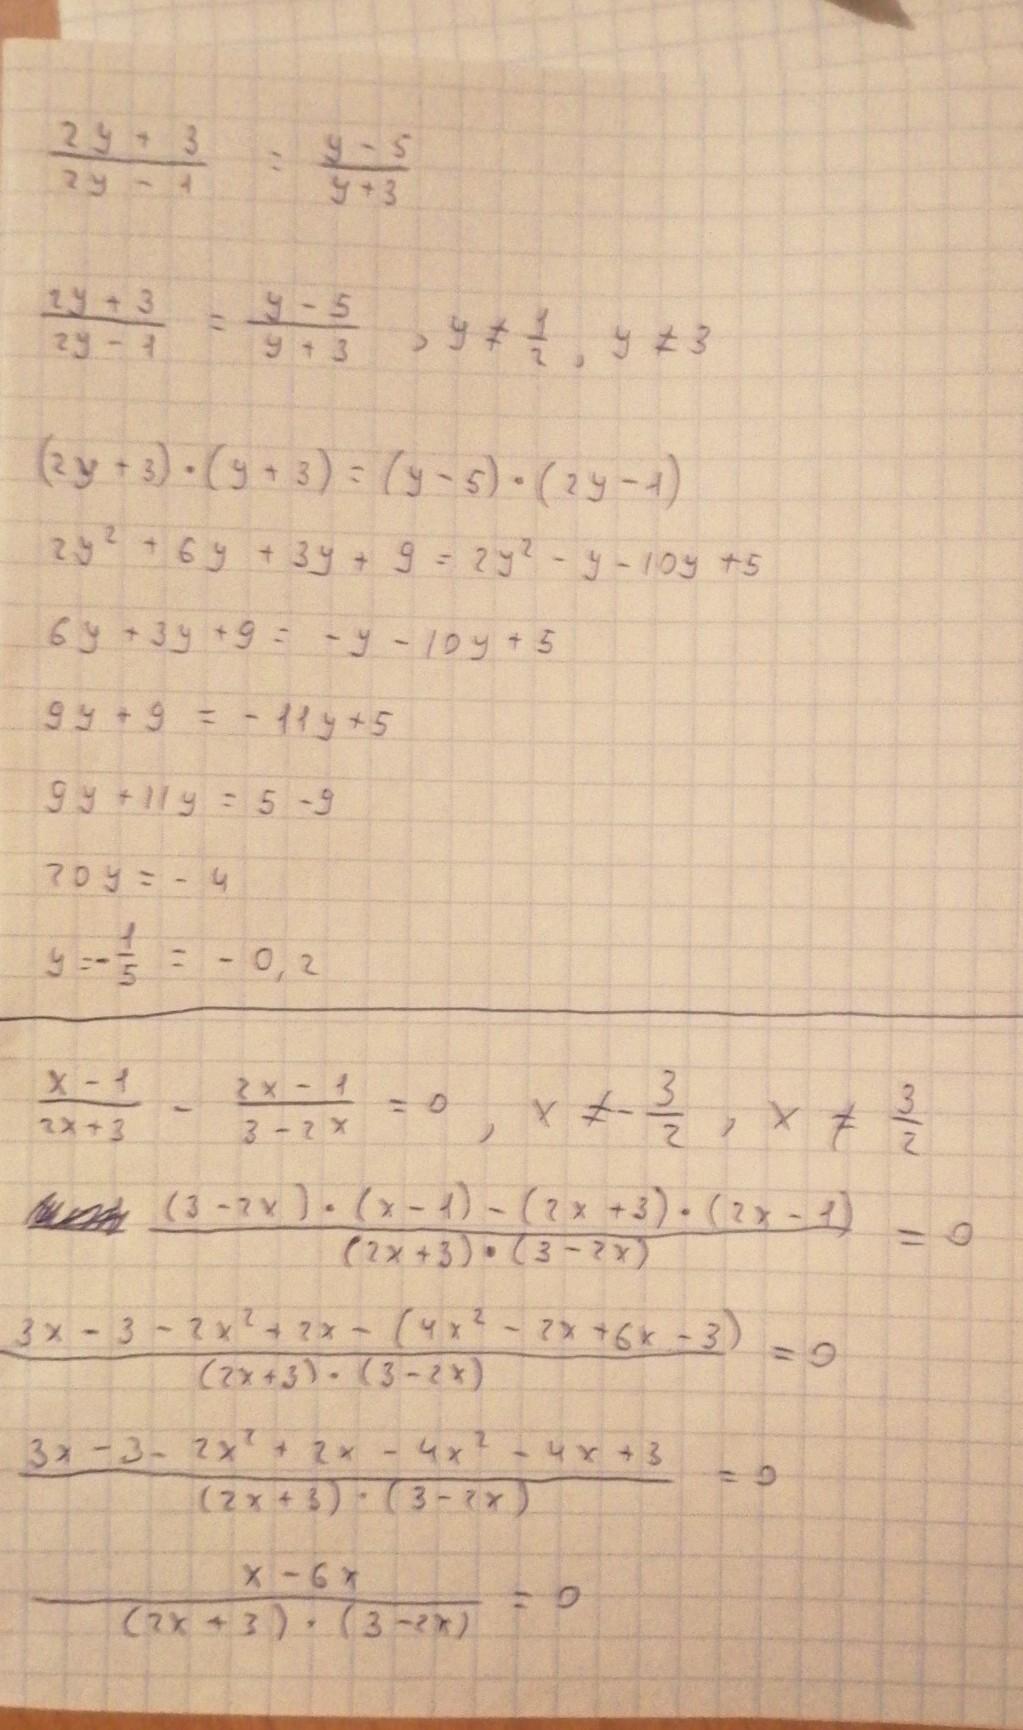 (2y + 3)/(2y - 1) = (y - 5)/(y + 3)
(2y + 3)/(2y - 1) = (y - 5)/(y + 3), y ≠ 1/2, y ≠ 3
(2y + 3) · (y + 3) = (y - 5) · (2y - 1)
2y² + 6y + 3y + 9 = 2y² - y - 10y + 5
6y + 3y + 9 = -y - 10y + 5
9y + 9 = -11y + 5
9y + 11y = 5 - 9
20y = -4
y = -1/5 = -0,2
(x - 1)/(2x + 3) - (2x - 1)/(3 - 2x) = 0, x ≠ -3/2, x ≠ 3/2
((3 - 2x) · (x - 1) - (2x + 3) · (2x - 1))/((2x + 3) · (3 - 2x)) = 0
(3x - 3 - 2x² + 2x - (4x² - 2x + 6x - 3))/((2x + 3) · (3 - 2x)) = 0
(3x - 3 - 2x² + 2x - 4x² - 4x + 3)/((2x + 3) · (3 - 2x)) = 0
(x - 6x)/((2x + 3) · (3 - 2x)) = 0